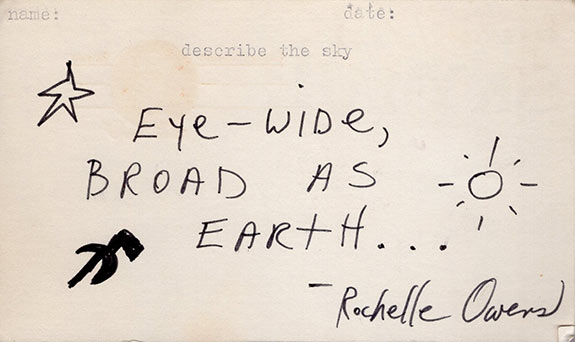 name: date:
describe the sky
Eye-WIDe,
BROAD AS
EARTH...
- Rochelle Owens